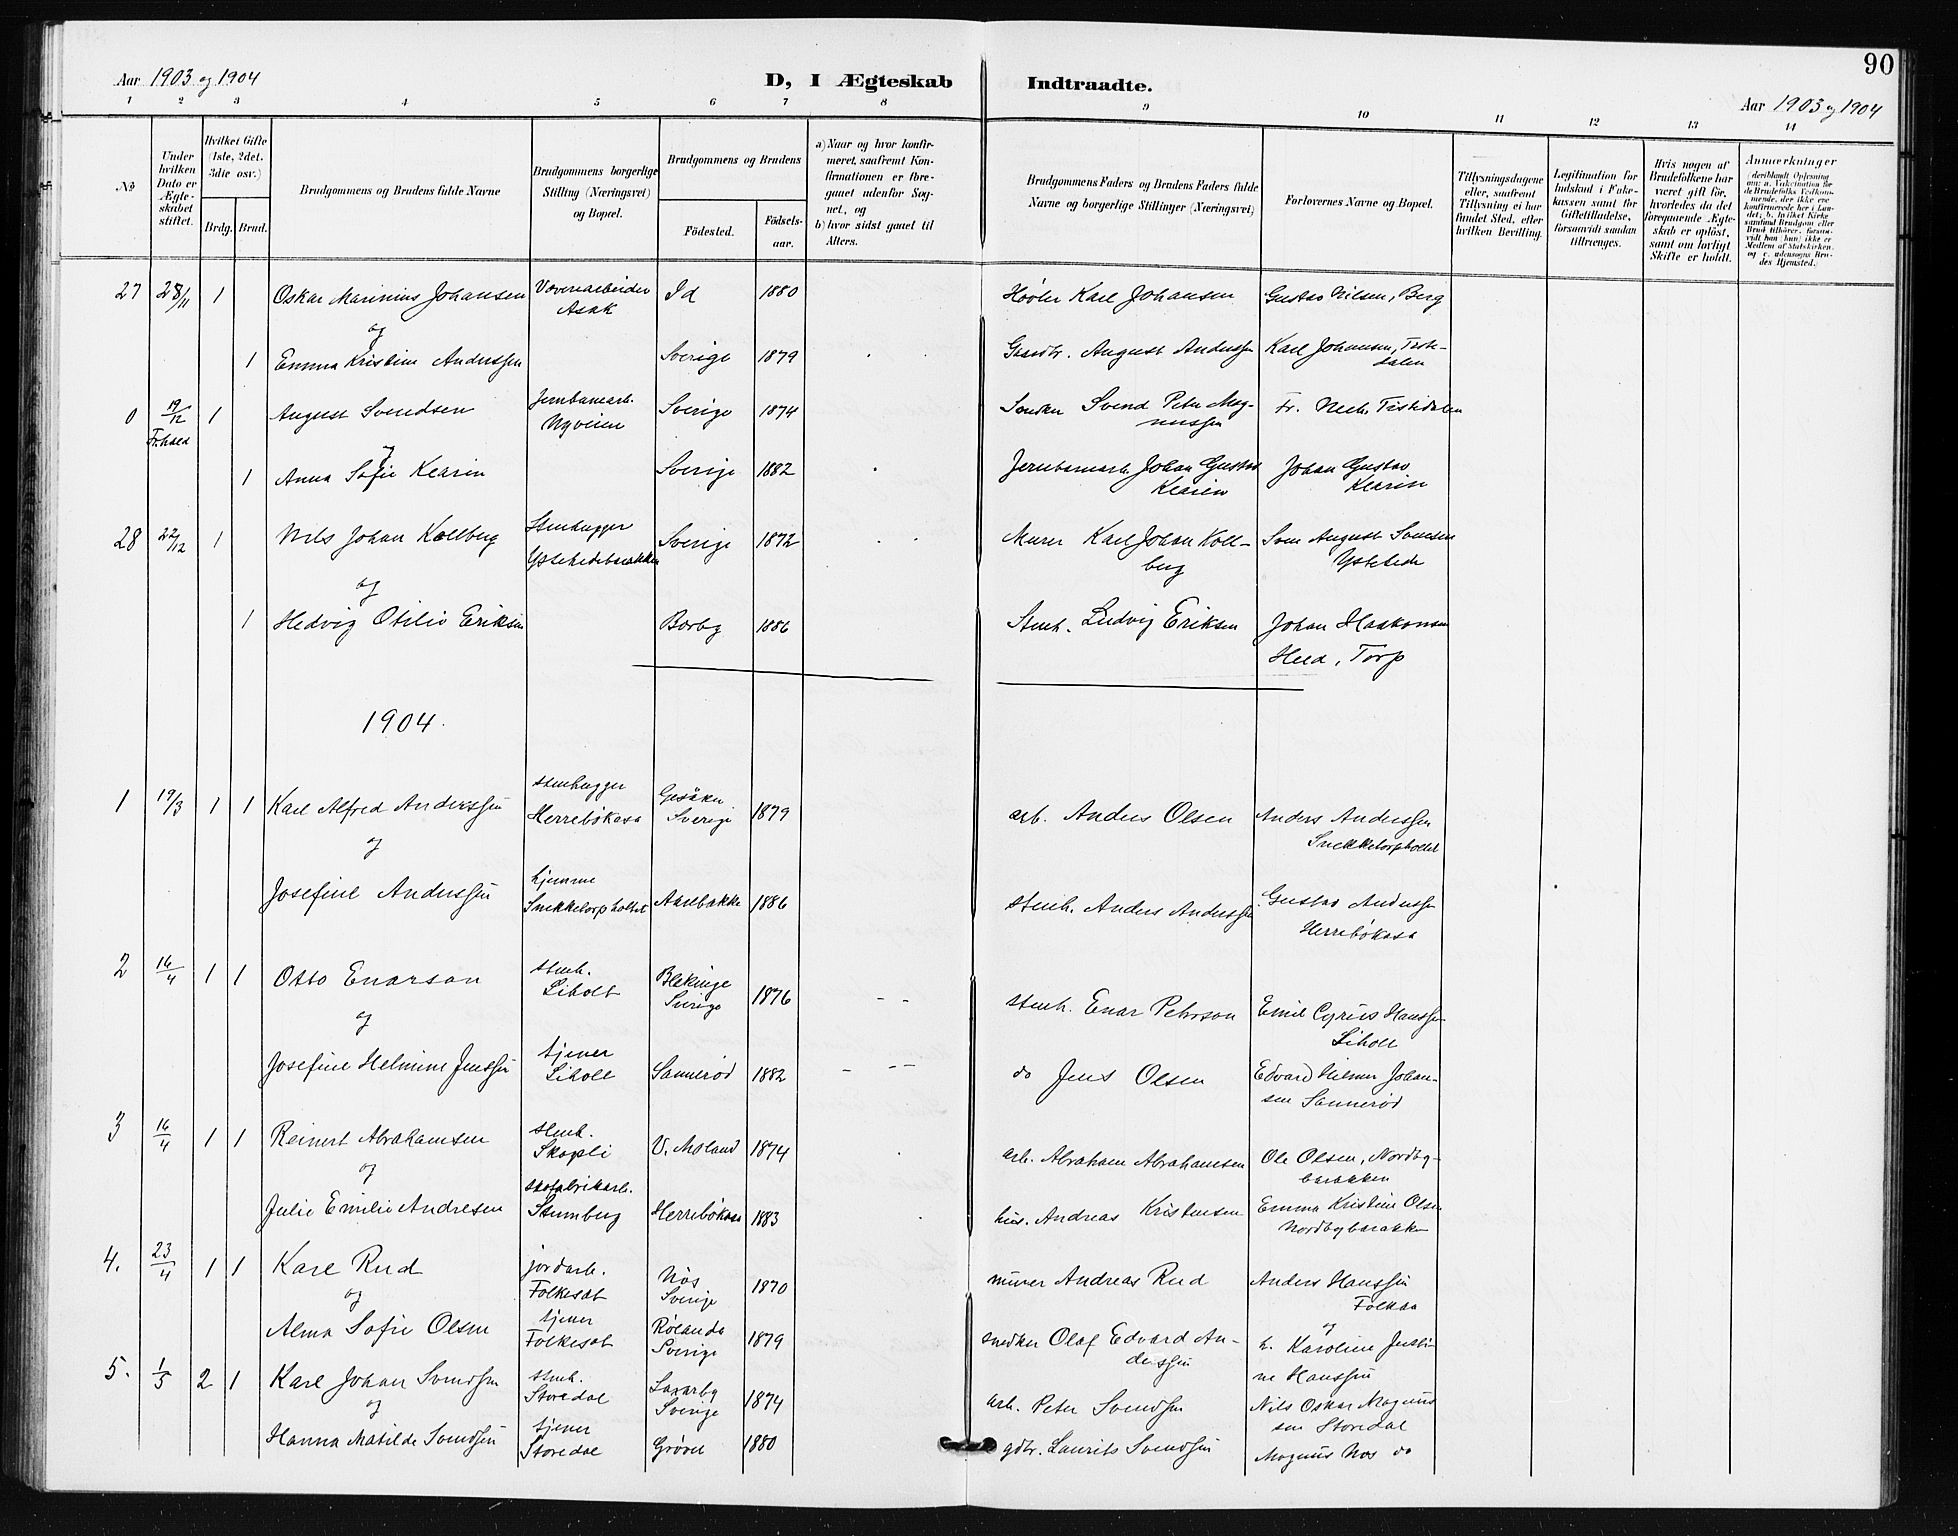 90
Aar 1903 og 1904
D, I Ægteskab Indtraadte.
Aar 1903 og 1904
1 2 3 4 5 6 7 8 9 10 11 12 13 14
No
Under hvilken Dato er Ægteskabet stiftet.
Hvilket Gifte (1ste, 2det, 3die osv.)
Brdg. Brud.
Brudgommens og Brudens fulde Navne
Brudgommens borgerlige Stilling (Næringsvei) og Bopæl.
Brudgommens og Brudens
Fødested. Fødselsaar.
a) Naar og hvor konfirmeret, saafremt Konfirmationen er foregaaet udenfor Sognet, og
b) hvor sidst gaaet til Alters.
Brudgommens Faders og Brudens Faders fulde Navne og borgerlige Stillinger (Næringsvei)
Forlovernes Navne og Bopæl.
Tillysningsdagene eller, saafremt Tillysning ei har fundet Sted, efter hvilken Bevilling.
Legitimation for Indskud i Enkekassen samt for Giftetilladelse, forsaavidt saadan tiltrænges.
Hvis nogen af Brudefolkene har været gift før, hvorledes da det foregaaende Ægteskab er opløst, samt om lovligt Skifte er holdt.
Anmærkninger
27 28/11 1 Oskar Marinius Johansen Væveriarbeider Asak Id 1880 Høvler Karl Johansen Gustav Nilsen, Berg
og
1 Emma Kristine Anderssen Sverige 1879 Gaardbr. August Anderssen Karl Johansen, Tistedalen
0 19/12 Fr.hald 1 August Svendsen Jernbanearb. Nyveien Sverige 1874 Snedker Svend Peter Magnussen Fr. Tistedalen
og
1 Anna Sofie Klarin Sverige 1882 Jernbanearb. Johan Gustav Klarin Johan Gustav Klarin
28 22/12 1 Nils Johan Kollberg Stenhugger Ystehedebrakken Sverige 1872 Murer Karl Johan Kollberg Sven August Svensen Ystehede
og
1 Hedvig Otilie Eriksen Borby 1886 Stenh. Ludvig Eriksen Johan Haakonsen Heed, Torp
1904.
1 19/3 1 1 Karl Alfred Anderssen stenhugger Herrebøkasa Gesäter Sverige 1879 arb. Anders Olsen Anders Anderssen Snekketorpholtet
og
Josefine Anderssen hjemme Snekketorpholtet Aarebakke 1886 stenh. Anders Anderssen Gustav Anderssen Herrebøkasa
2 16/4 1 1 Otto Enarson stenh. Liholt Blekinge Sverige 1876 - - stenh. Enar Pehrson Emil Cyrius Hanssen Liholt
og
Josefine Helmine Jenssen tjener Liholt Sannerød 1882 - - - do Jens Olsen Edvard Hilmer Johansen Sannerød
3 16/4 1 1 Reinert Abrahamsen stenh. Skogli V. Moland 1874 arb. Abraham Abrahamsen Ole Olsen, Nordbybarakken
og
Julie Emilie Andresen skofabrikarb. Stumberg Herrebøkasa 1883 hus. Andreas Kristensen Emma Kristine Olsen Nordbybarakken
4. 23/4 1 1 Karl Rud jordarb. Folkesat Näs Sverige 1870 murer Andreas Rud Anders Hanssen Folkaa
og
og
Alma Sofie Olsen tjener Folkesat Rölanda Sverige 1879 snedker Olaf Edvard Anderssen h. Karoline Justine Hanssen
5. 1/5 2 1 Karl Johan Svendsen stenh. Storedal Laxarby Sverige 1874 arb. Peter Svendsen Nils Oskar Magnussen Storedal
og
Hanna Matilde Svendsen tjener Storedal Grøvu 1880 gdbr. Laurits Svendsen Magnus Nos do